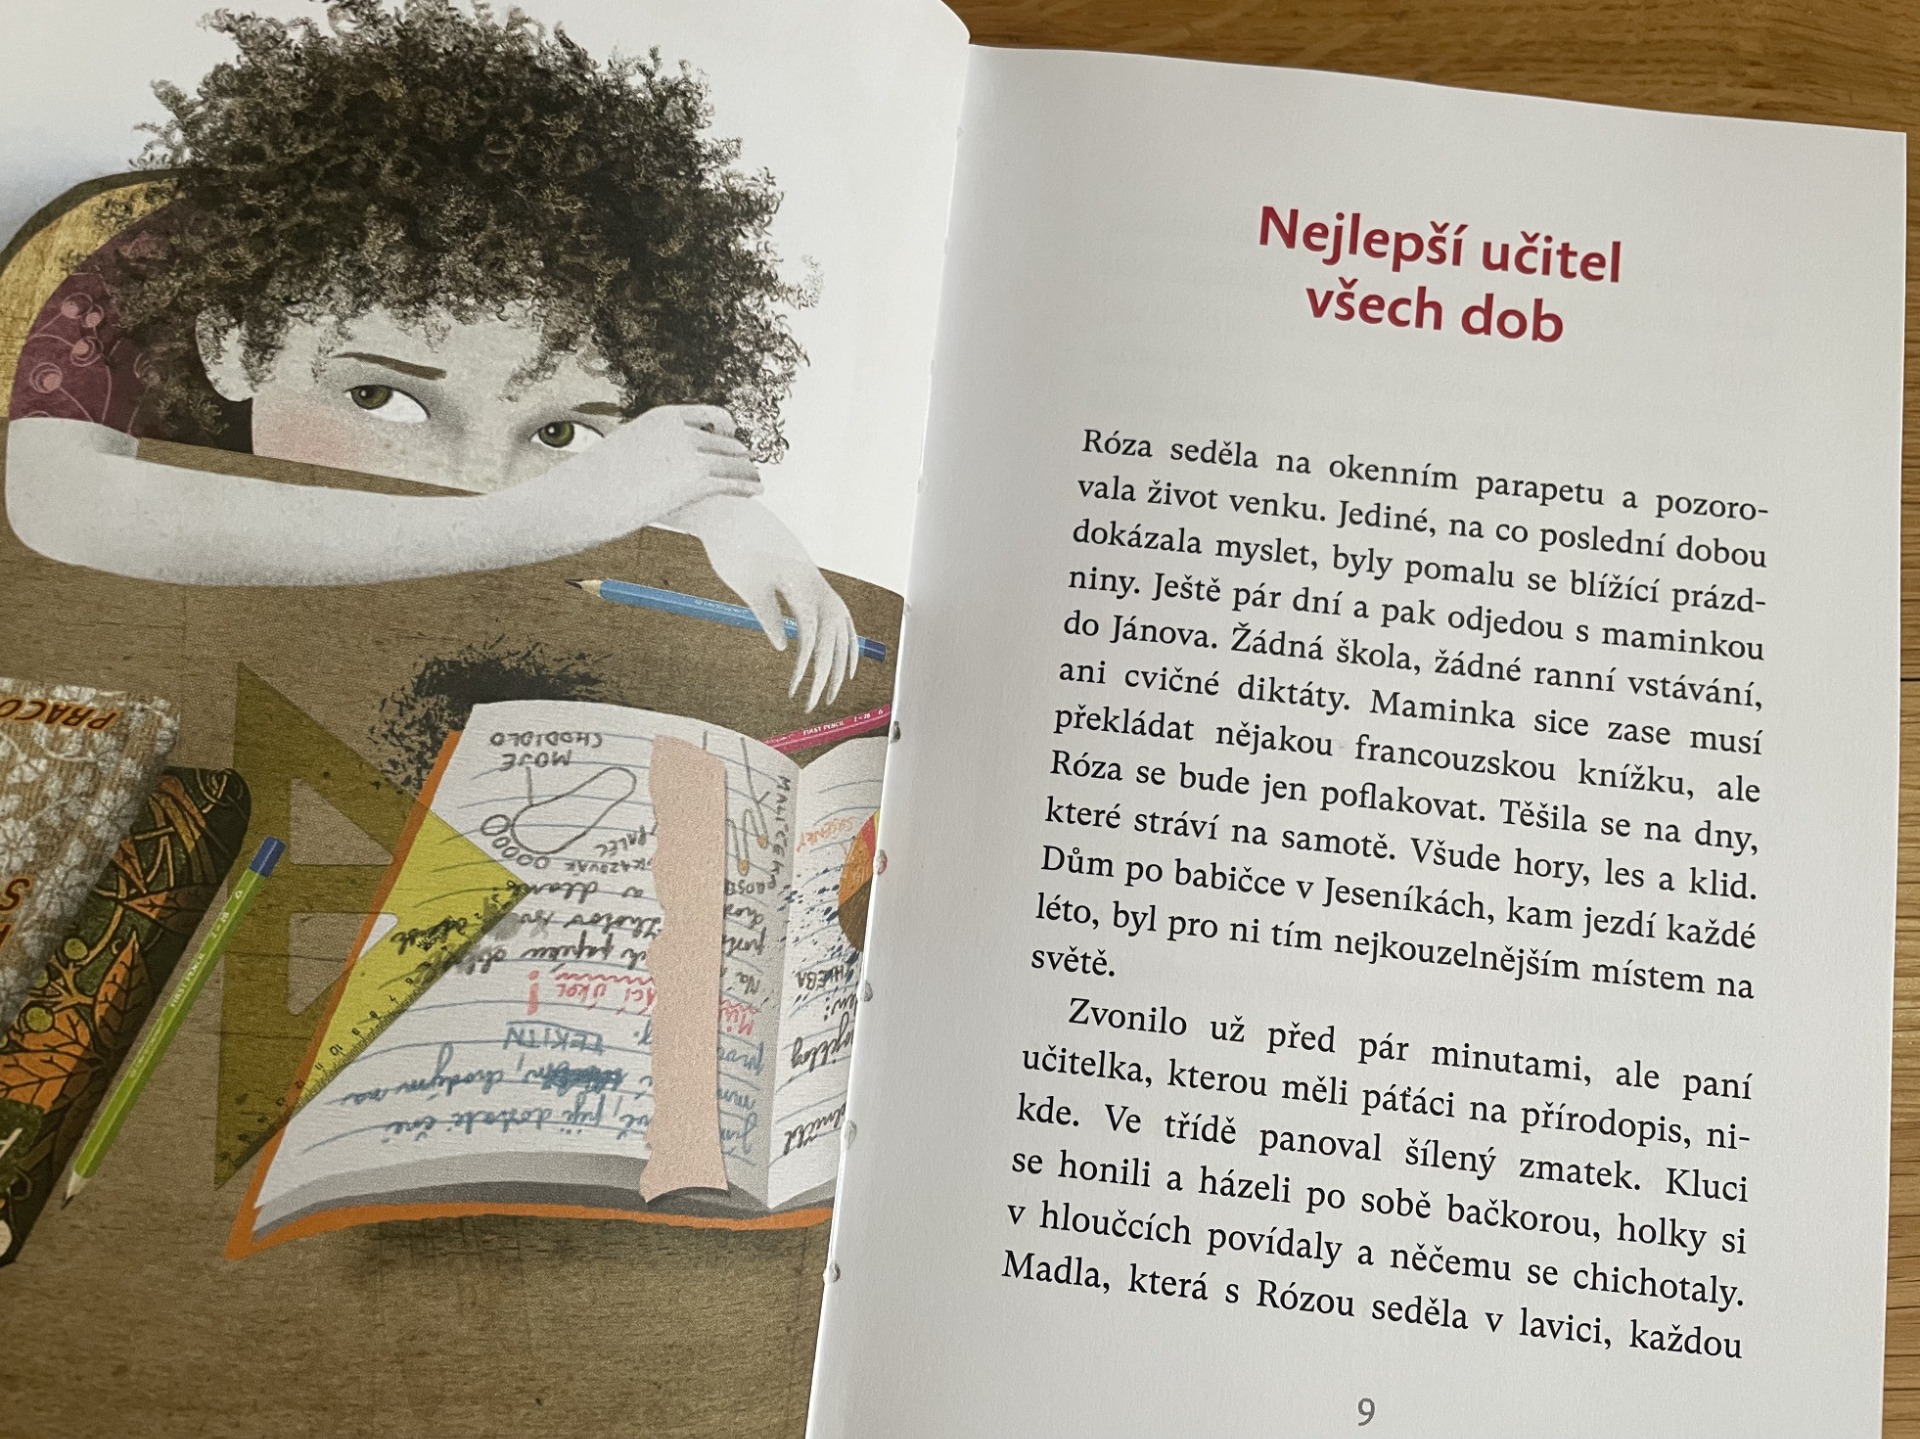 PRACO
S
MOJE
CHODIDLO
PALEC
MALÍČEK
FIRST PENCIL
FIRST PENCIL
Nejlepší učitel
všech dob
Róza seděla na okenním parapetu a pozoro-
vala život venku. Jediné, na co poslední dobou
dokázala myslet, byly pomalu se blížící prázd-
niny. Ještě pár dní a pak odjedou s maminkou
do Jánova. Žádná škola, žádné ranní vstávání,
ani cvičné diktáty. Maminka sice zase musí
překládat nějakou francouzskou knížku, ale
Róza se bude jen poflakovat. Těšila se na dny,
které stráví na samotě. Všude hory, les a klid.
Dům po babičce v Jeseníkách, kam jezdí každé
léto, byl pro ni tím nejkouzelnějším místem na
světě.
Zvonilo už před pár minutami, ale paní
učitelka, kterou měli páťáci na přírodopis, ni-
kde. Ve třídě panoval šílený zmatek. Kluci
se honili a házeli po sobě bačkorou, holky si
v hloučcích povídaly a něčemu se chichotaly.
Madla, která s Rózou seděla v lavici, každou
9